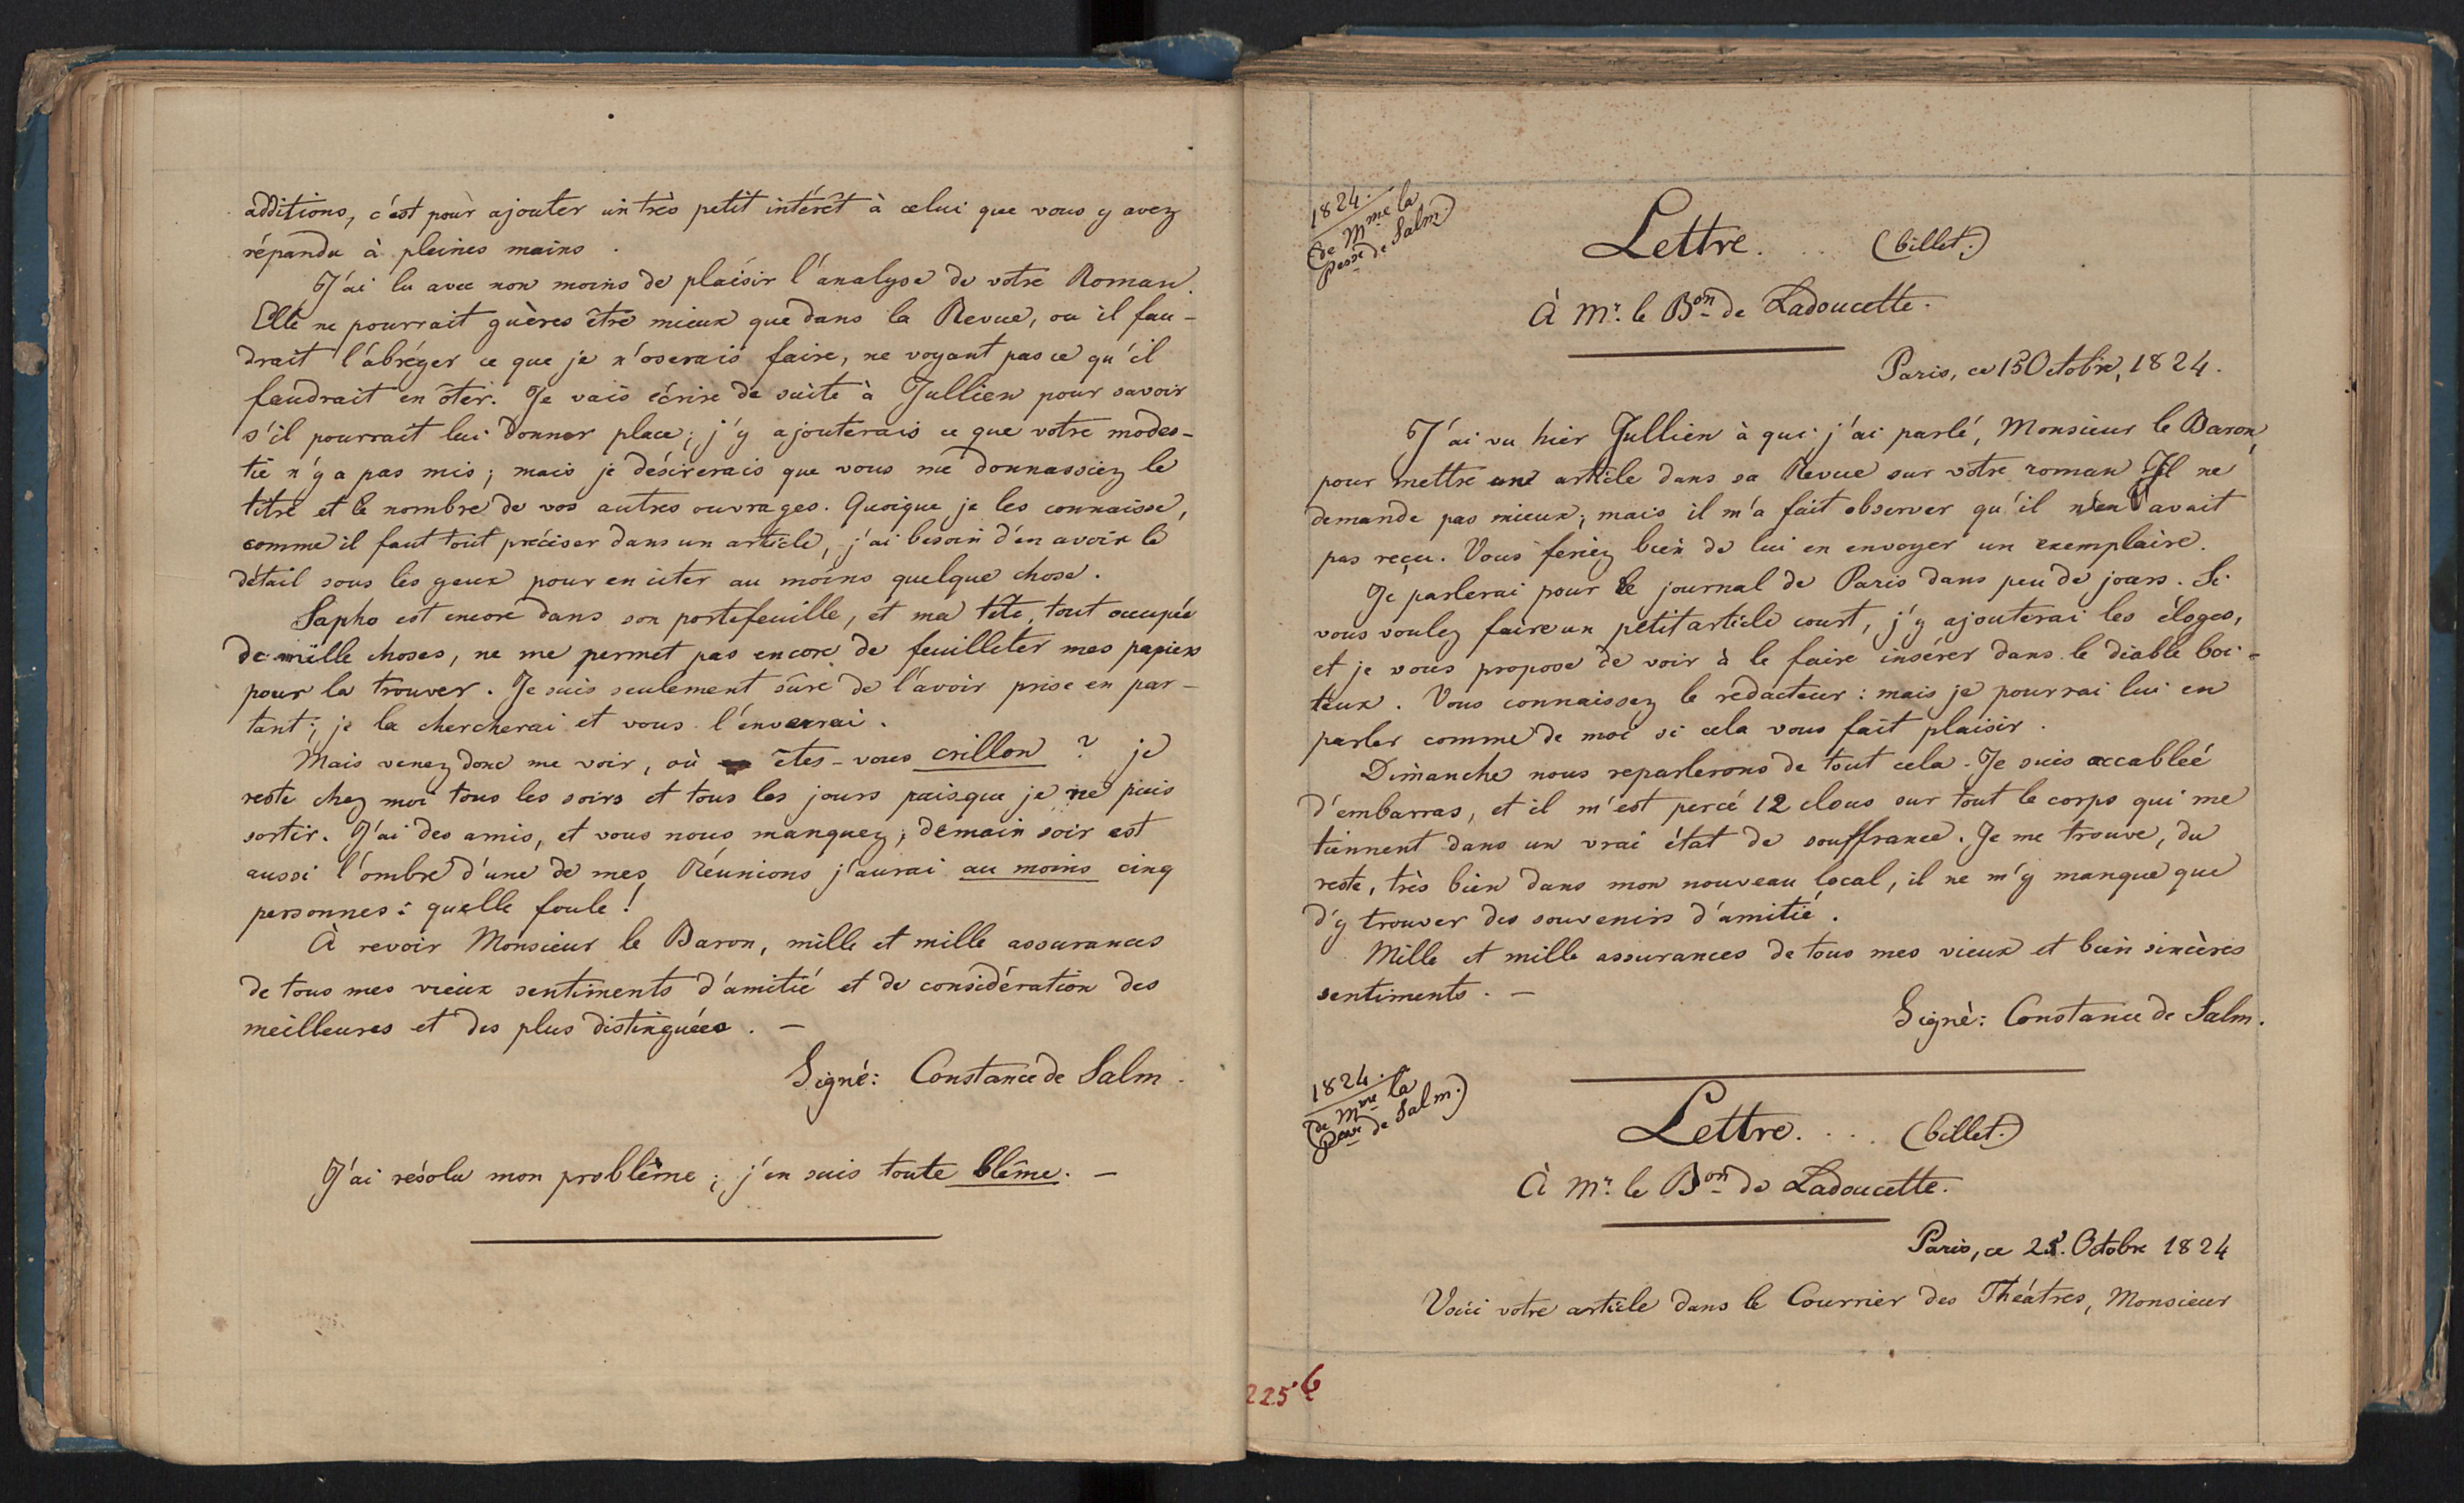 additions, c'est pour ajouter un très petit intérêt à celui que vous y avez
répandu à pleines mains.
J'ai lu avec non moins de plaisir l'analyse de votre Roman.
Elle ne pourrait guères être mieux que dans la Revue, ou il fau-
drait l'abréger ce que je n'oserais faire, ne voyant pas ce qu'il
faudrait en ôter. Je vais écrire de suite à Jullien pour savoir
s'il pourrait lui donner place; j'y ajouterais ce que votre modes-
tie n'y a pas mis; mais je désirerais que vous me donnassiez le
titre et le nombre de vos autres ouvrages. Quoique je les connaisse,
comme il faut tout préciser dans un article, j'ai besoin d'en avoir le
détail sous les yeux pour en citer au moins quelque chose.
Sapho est encore dans son portefeuille, et ma tête, tout occupée
de mille choses, ne me permet pas encore de feuilleter mes papiers
pour la trouver. Je suis seulement sûre de l'avoir prise en par-
tant; je la chercherai et vous l'enverrai.
Mais venez donc me voir, où êtes-vous crillon? je
reste chez moi tous les soirs et tous les jours puisque je ne puis
sortir. J'ai des amis, et vous nous manquez; demain soir est
aussi l'ombre d'une de mes Réunions j'aurai au moins cinq
personnes: quelle foule!
À revoir Monsieur le Baron, mille et mille assurances
de tous mes vieux sentiments d'amitié et de considération des
meilleures et des plus distinguées. —
Signé: Constance de Salm.
J'ai résolu mon problème; j'en suis toute blême. —
1824.
(de Mme la
Pesse de Salm)
Lettre. .. (billet.)
À Mr. le Bon de Ladoucette.
Paris, ce 15 Octobre, 1824.
J'ai vu hier Jullien à qui j'ai parlé, Monsieur le Baron,
pour mettre un article dans sa Revue sur votre roman Il ne
demande pas mieux; mais il m'a fait observer qu'il n'en avait
pas reçu. Vous feriez bien de lui en envoyer un exemplaire.
Je parlerai pour le journal de Paris dans peu de jours. Si
vous voulez faire un petit article court, j'y ajouterai les éloges,
et je vous propose de voir à le faire insérer dans le diable boi-
teux. Vous connaissez le rédacteur: mais je pourrai lui en
parler comme de moi si cela vous fait plaisir.
Dimanche nous reparlerons de tout cela. Je suis accablée
d'embarras, et il m'est percé 12 clous sur tout le corps qui me
tiennent dans un vrai état de souffrance. Je me trouve, du
reste, très bien dans mon nouveau local, il ne m'y manque que
d'y trouver des souvenirs d'amitié.
Mille et mille assurances de tous mes vieux et bien sincères
sentiments. —
Signé: Constance de Salm.
1824.
(de Mme la
Pesse de Salm.)
Lettre. ... (billet.)
À Mr. le Bon de Ladoucette.
Paris, ce Octobre 1824
Voici votre article dans le Courrier des Théâtres, Monsieur
225 6